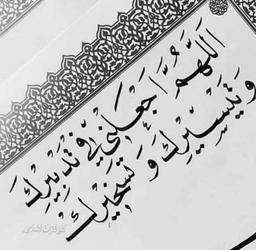 اَللّٰهُمَّ اجْعَلْنِي فِي تَدْبِيرِكَ
وَتَيْسِيرِكَ وَتَسْخِيرِكَ